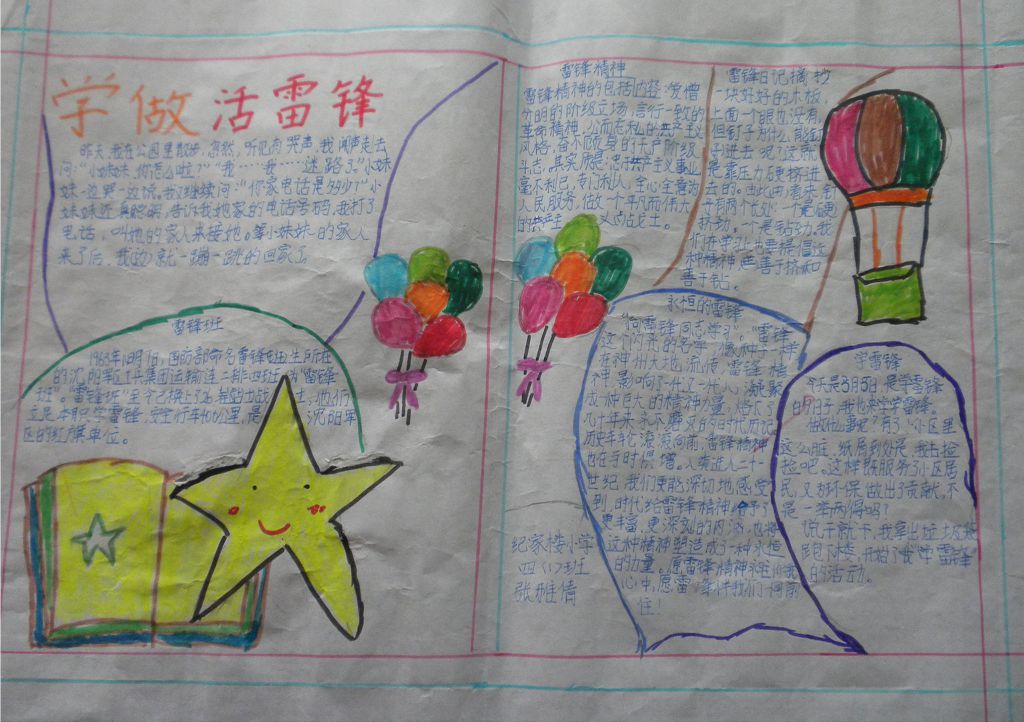 学做活雷锋
昨天,我在公园里散步,忽然,听见肉哭声,我闻声走去
问:“小妹妹,你怎么啦?”“我……我……迷路了。”小妹
妹一边哭一边说。我又继续问:“你家电话是多少?”小
妹妹还真聪明,告诉我她家的电话号码,我打了
电话,叫她的家人来接她。等小妹妹的家人
来了后,我就一蹦一跳的回家了。
雷锋班
1963年 国防部命名雷锋班生所在
的沈阳军区 集团 运输连二排四班为“雷锋
班”。“雷锋班”至今已换上了
立足本职学雷锋,安全行车 公里,是 沈阳军
区的红旗单位。
雷锋精神
雷锋精神的包括内容:爱憎
分明的阶级立场,言行一致的
革命精神,公而忘私的共产主义
风格,奋不顾身的无产阶级
斗志,其实质是忠于共产主义事业
毫不利己,专门利人,全心全意为
人民服务,估做一个平凡而伟大
的共产主义 战士。
雷锋日记摘抄
一块好好的木板,
上面一个眼也没有,
但钉子为什么能
进去呢?这就
是靠压力硬挤进
去的。由此可看来,钉
子有两个长处:一个是硬
挤劲,一个是钻劲,我
们在学习上也要提倡这
种精神,善于挤和
善于钻。
永恒的雷锋
“向雷锋同志学习”,“雷锋”
这个闪光的名字,像种子一样
在神州大地流传,雷锋精
神,影响了一代又一代人,凝聚
成一种巨大的精神力量,熔铸了
几十年来永不磨灭的时代历记
历史车轮滚滚向前,雷锋精神
也在与时俱增。人类进入二十一
世纪,我们更能深切地感受
到,时代给雷锋精神 予了
更丰富、更深刻的内涵,也将
这种精神塑造成了一种永恒
的力量。愿雷锋精神永驻你我
心中,愿雷锋伴我们何前
往!
学雷锋
今天是3月5日,是学雷锋
的日子,我也来学学雷锋。
做什么事呢?有了!小区里
这么脏,纸屑到处是,我去捡
捡吧。这样既服务了小区居
民,又为环保做出了贡献,不
是一举两得吗?
说干就干,我拿出垃圾袋
跑下楼,开始了我“学雷锋”
的活动。
纪家楼小学
四(1)班
张雅倩